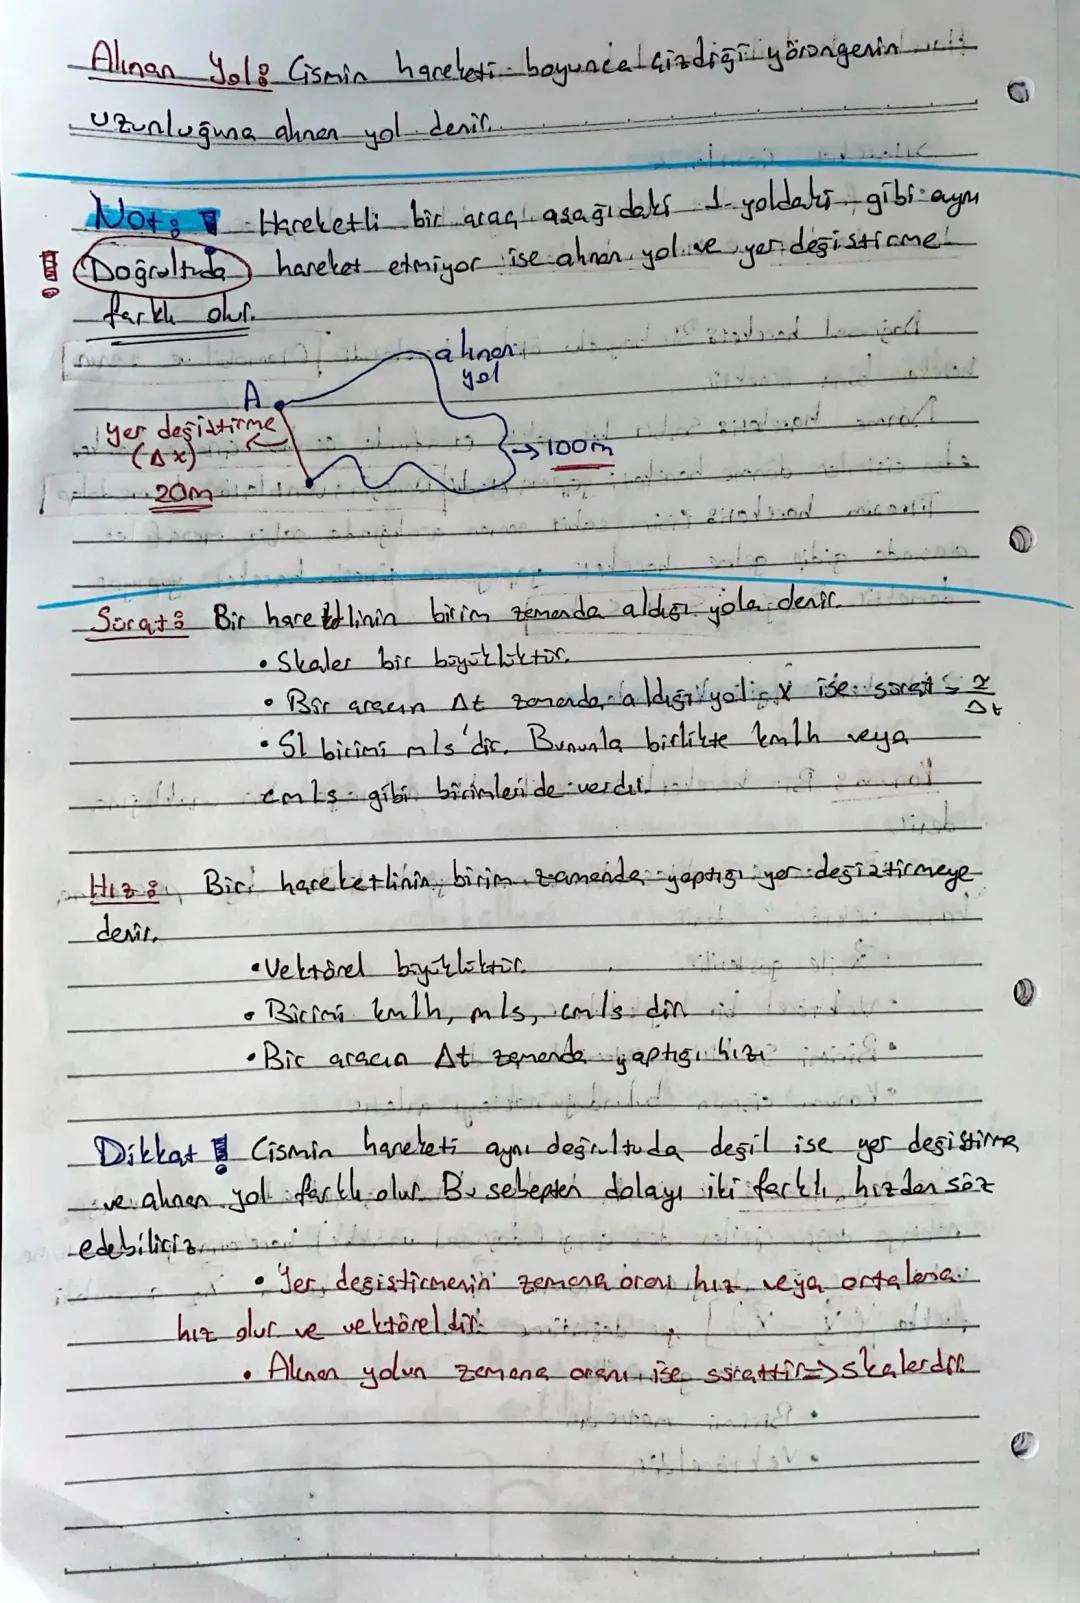 Alınan Yol: Cismin hareketi boyunca çizdiği yörüngenin
uzunluğuna alınan yol denir.
Not: ! Hareketli bir araç aşağıdaki 1. yoldaki gibi aynı
Doğrultuda hareket etmiyor ise alınan yol ve yer değiştirme
farklı olur.
alınan
yol
A
yer değiştirme
(Δx)
→100m
20m
Sürat: Bir hareketlinin birim zamanda aldığı yola denir.
• Skaler bir büyüklüktür.
• Bir aracın Δt zamanda aldığı yol x ise sürat = x/Δt
• SI birimi m/s'dir. Bununla birlikte km/h veya
cm/s gibi birimleri de vardır.
Hız: Bir hareketlinin birim zamanda yaptığı yer değiştirmeye
denir.
• Vektörel büyüklüktür.
• Birimi km/h, m/s, cm/s dir
• Bir aracın Δt zamanda yaptığı hızı
Dikkat ! Cismin hareketi aynı doğrultuda değil ise yer değiştirme
ve alınan yol farklı olur. Bu sebepten dolayı iki farklı hızdan söz
edebiliriz.
• Yer değiştirmenin zamana oranı hız veya ortalama
hız olur ve vektöreldir.
• Alınan yolun zamana oranı ise sürattir => skalerdir